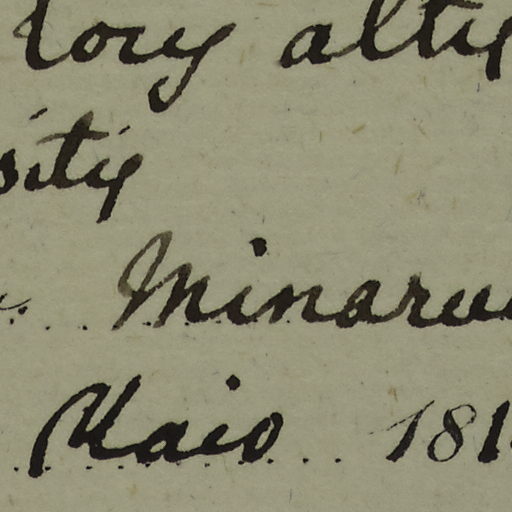 lory alty
sity
Minaru
Maio 181